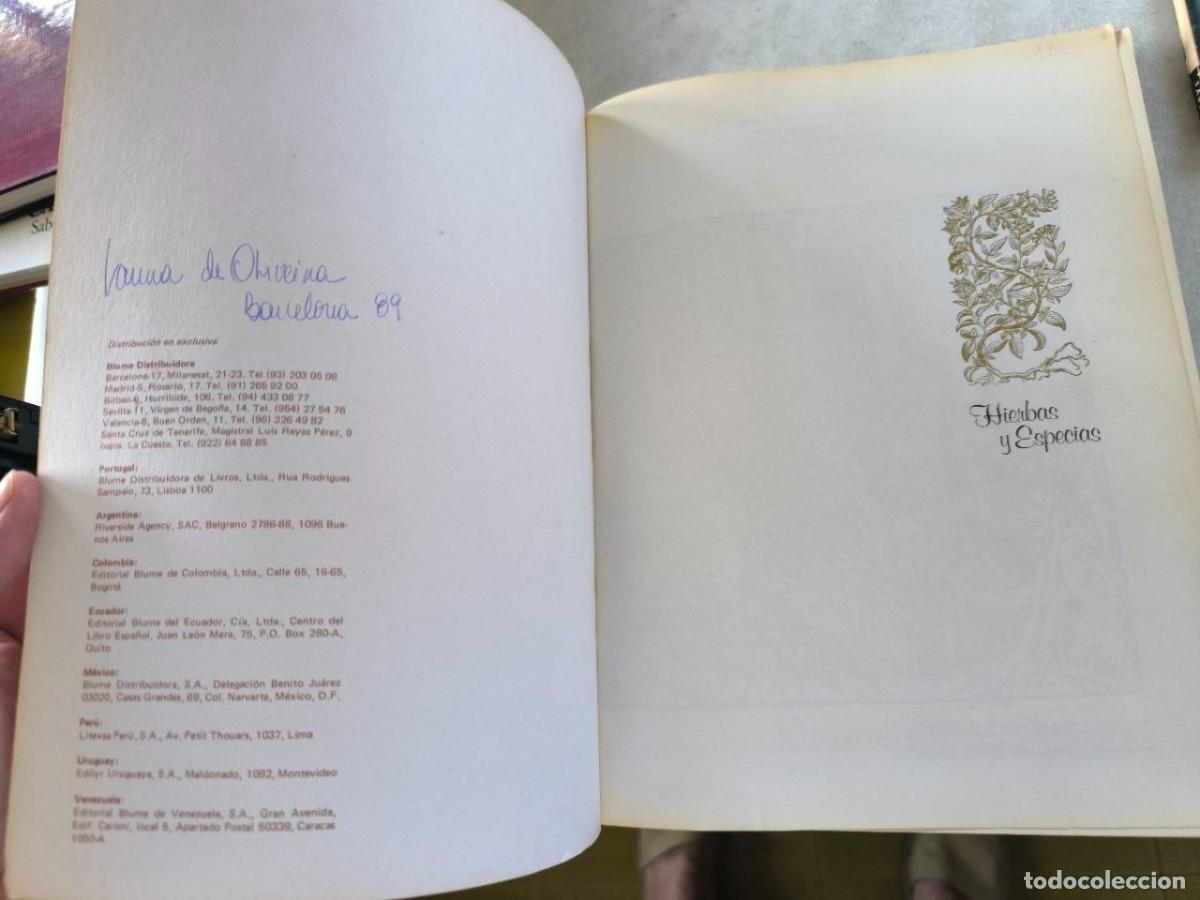 de Oliveira
Barcelona 89
Distribución en exclusiva
Blume Distribuidora
Barcelona-17, Milanesat, 21-23. Tel (93) 203 05 08
Madrid-5, Rosario, 17. Tel. (91) 265 92 00
Iturribide, 106. Tel. (94) 433 08 77
Sevilla-11, Virgen de Begoña, 14. Tel. (954) 27 54 76
Valencia-8, Buen Orden, 11, Tel. (96) 326 49 82
Santa Cruz de Tenerife, Magistral Luis Reyes Pérez, 9
bajos. La Cuesta. Tel. (922) 64 88 85
Portugal:
Blume Distribuidora de Livros, Ltda., Rua Rodrigues
Sampaio, 73, Lisboa 1100
Argentina:
Riverside Agency, SAC, Belgrano 2786-88, 1096 Bue-
nos Aires
Colombia:
Editorial Blume de Colombia, Ltda., Calle 65, 16-65,
Bogotá
Ecuador:
Editorial Blume del Ecuador, Cía, Ltda., Centro del
Libro Español, Juan León Mera, 75, P.O. Box 280-A,
Quito
México:
Blume Distribuidora, S.A., Delegación Benito Juárez
03020, Casas Grandes, 69, Col. Narvarte, México, D.F.
Perú:
Litexsa Perú, S.A., Av. Petit Thouars, 1037, Lima
Uruguay:
Edilyr Uruguaya, S.A., Maldonado, 1092, Montevideo
Venezuela:
Editorial Blume de Venezuela, S.A., Gran Avenida,
Edif. Caroní, local 5, Apartado Postal 50339, Caracas
1050-A
Hierbas
y Especias
Sab
todocoleccion